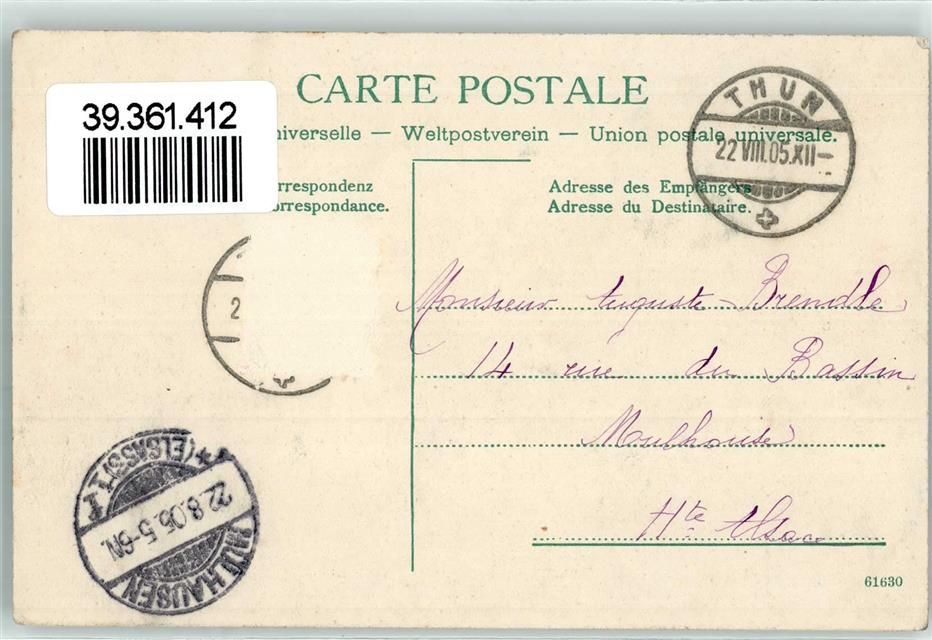 39.361.412
CARTE POSTALE
niverselle — Weltpostverein — Union postale universale.
rrespondenz
orrespondance.
Adresse des Empfängers
Adresse du Destinataire.
THUN
22 VIII.05.XII-
2
Monsieur Auguste Brendle
14 rue du Bassin
Moulhouse
Hte Alsace
MÜLHAUSEN
22.8.05.5-6N.
(ELSASS)
61630